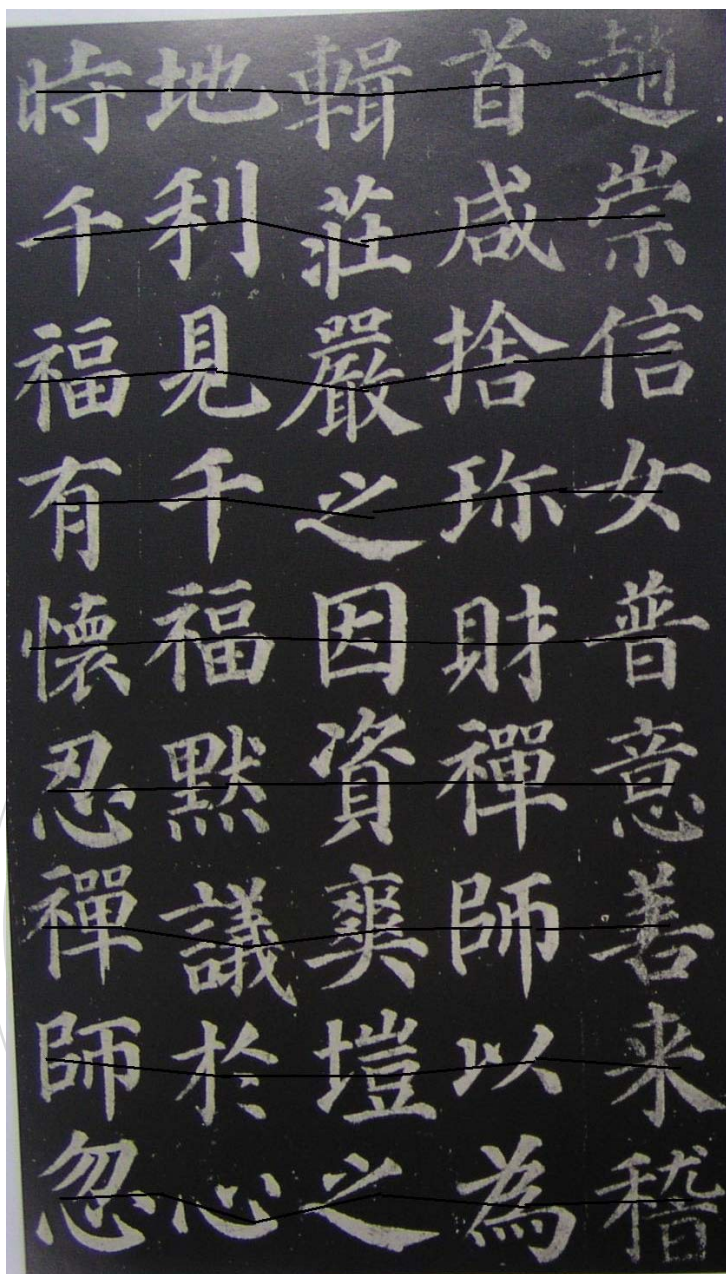 趙崇信女普意善来稽
首咸捨珎財禪師以為
輯莊嚴之因資爽塏之
地利見千福默議於心
時千福有懷忍禪師忽